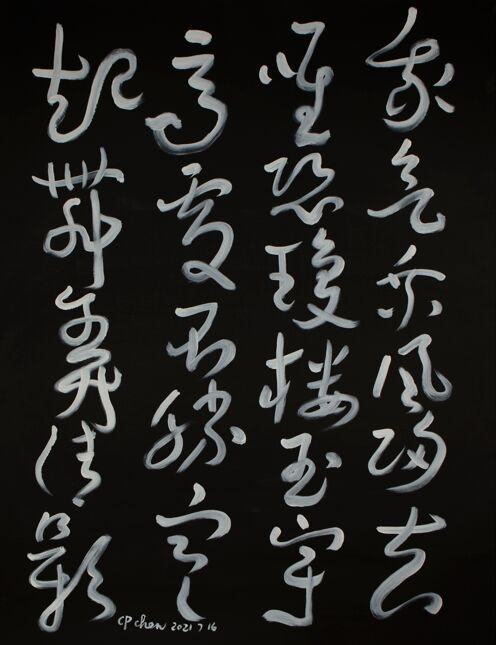 我欲乘風歸去
惟恐瓊樓玉宇
高處不勝寒
起舞弄清影
CP chen 2021 7 16